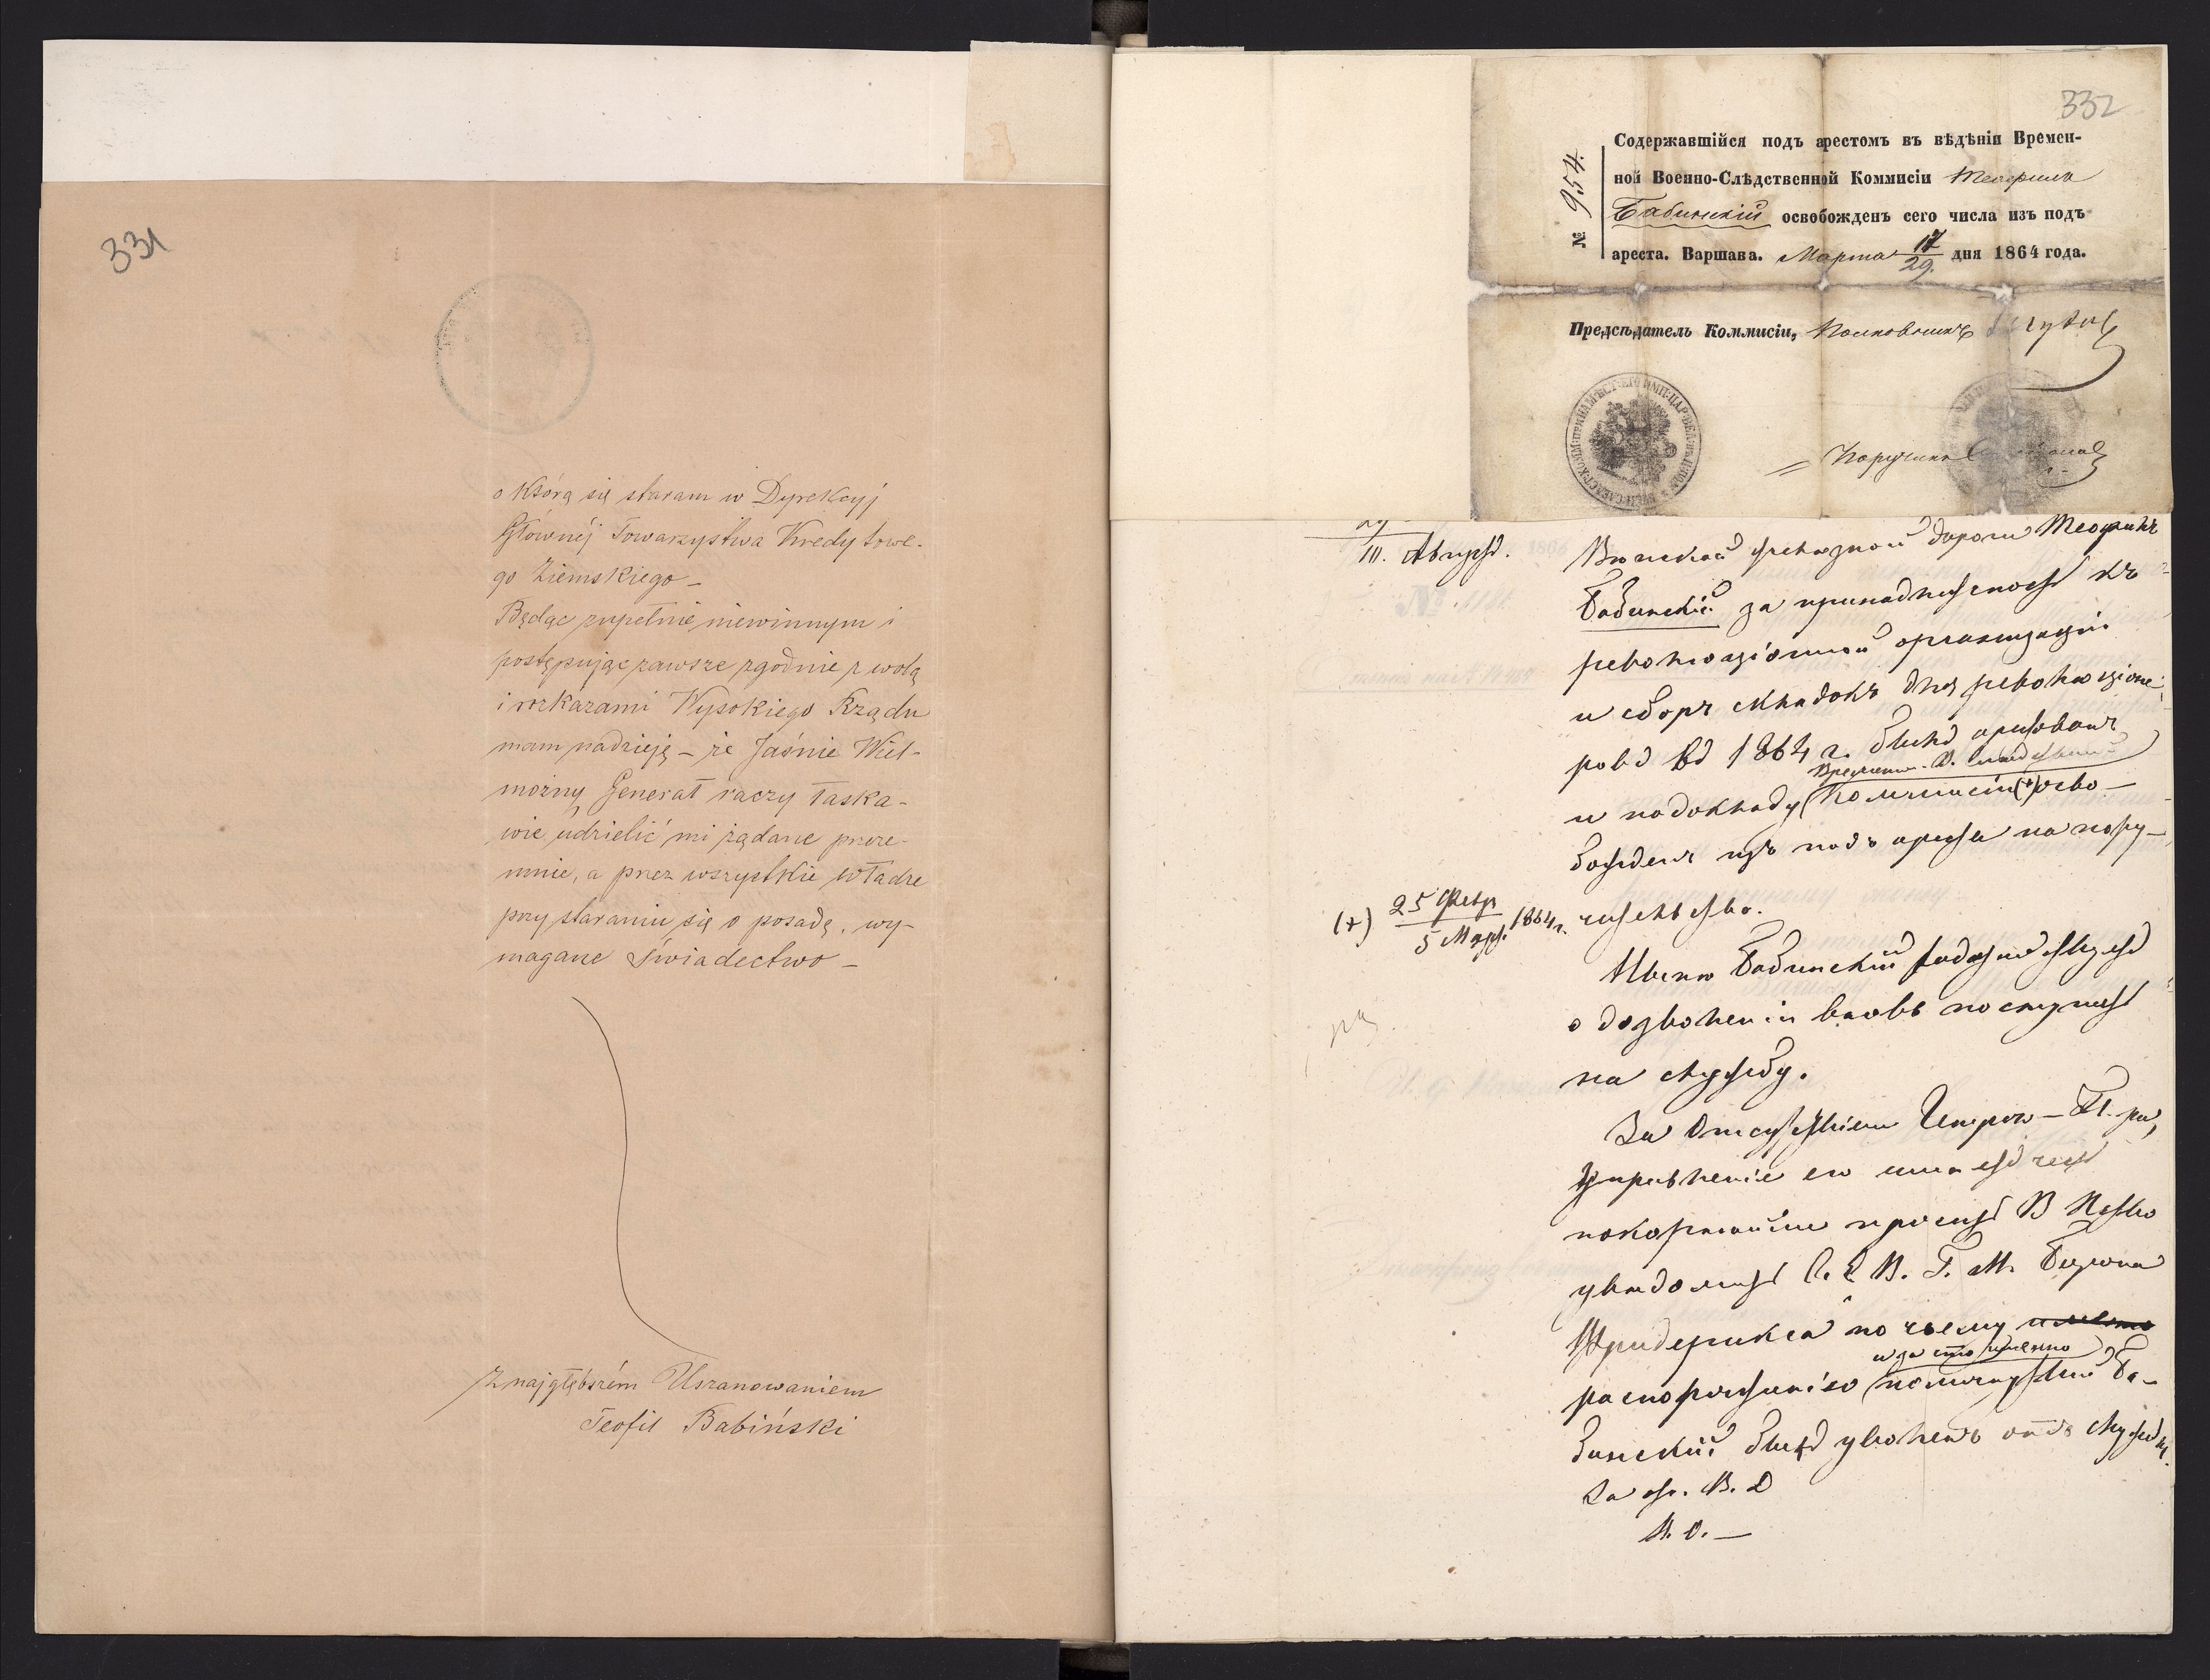 331
o którą się staram w Dyrekcyj
Głównéj Towarzystwa Kredytowe-
go Ziemskiego —
Będąc zupełnie niewinnym i
postępując zawsze zgodnie z wolą
i rozkazami Wysokiego Rządu
mam nadzieję — że Jaśnie Wiel-
możny Generał raczy łaska-
wie udzielić mi żądane prze-
mnie, a przez wszystkie władze
przy staraniu się o posadę, wy-
magane świadectwo —
Z najgłębszém Uszanowaniem
Teofil Babiński
332
№ 954.
Содержавшійся подъ арестомъ въ вѣдѣніи Времен-
ной Военно-Слѣдственной Коммисіи Теофиль
Бабинскій освобожденъ сего числа изъ подъ
ареста. Варшава. Марта 17/29 дня 1864 года.
Предсѣдатель Коммисіи, Полковникъ
Поручикъ
III. Августа.
желѣзной дороги Теофилъ
Бабинскій за принадлежность къ
революціонной организаціи
и сборъ складокъ для революціоне-
ровъ въ 1864 г. былъ арестованъ
и по докладу Коммисіи (+) осво-
божденъ изъ подъ ареста на пору-
чительство.
(+) 25 Февр/5 Март. 1864 г.
Нынѣ Бабинскій ходатайствуетъ
о дозволеніи вновь поступить
на службу.
За отсутствіемъ Генерал-П.-ра,
Управленіе его имѣетъ честь
покорнѣйше просить В
увѣдомить С. Е. В. Г. М. Барона
Фридерикса по чьему
и за что именно
распоряженію помянутый Ба-
бинскій былъ уволенъ отъ службы.
За В. Д
Н. О. —